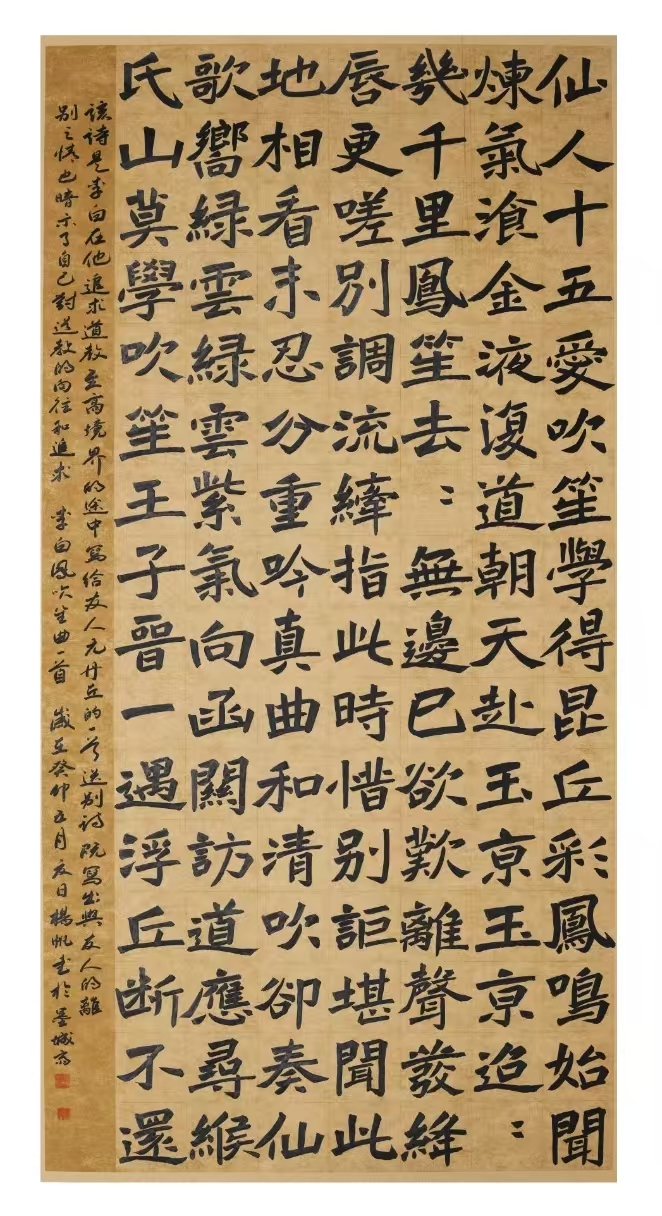 仙人十五愛吹笙學得昆丘彩鳳鳴始聞
煉氣飡金液復道朝天赴玉京玉京迢〻
幾千里鳳笙去〻無邊已欲歎離聲發絳
唇更嗟別調流縴指此時惜别詎堪聞此
地相看未忍分重吟真曲和清吹卻奏仙
歌嚮綠雲綠雲紫氣向函關訪道應尋緱
氏山莫學吹笙王子晉一遇浮丘断不還
該诗是李白在他追求道教至高境界的途中寫给友人元丹丘的一首送别诗既寫出與友人的離
别之情也暗示了自己對道教的向往和追求 李白鳳吹笙曲一首 歲在癸卯五月夏日楊帆書於墨城